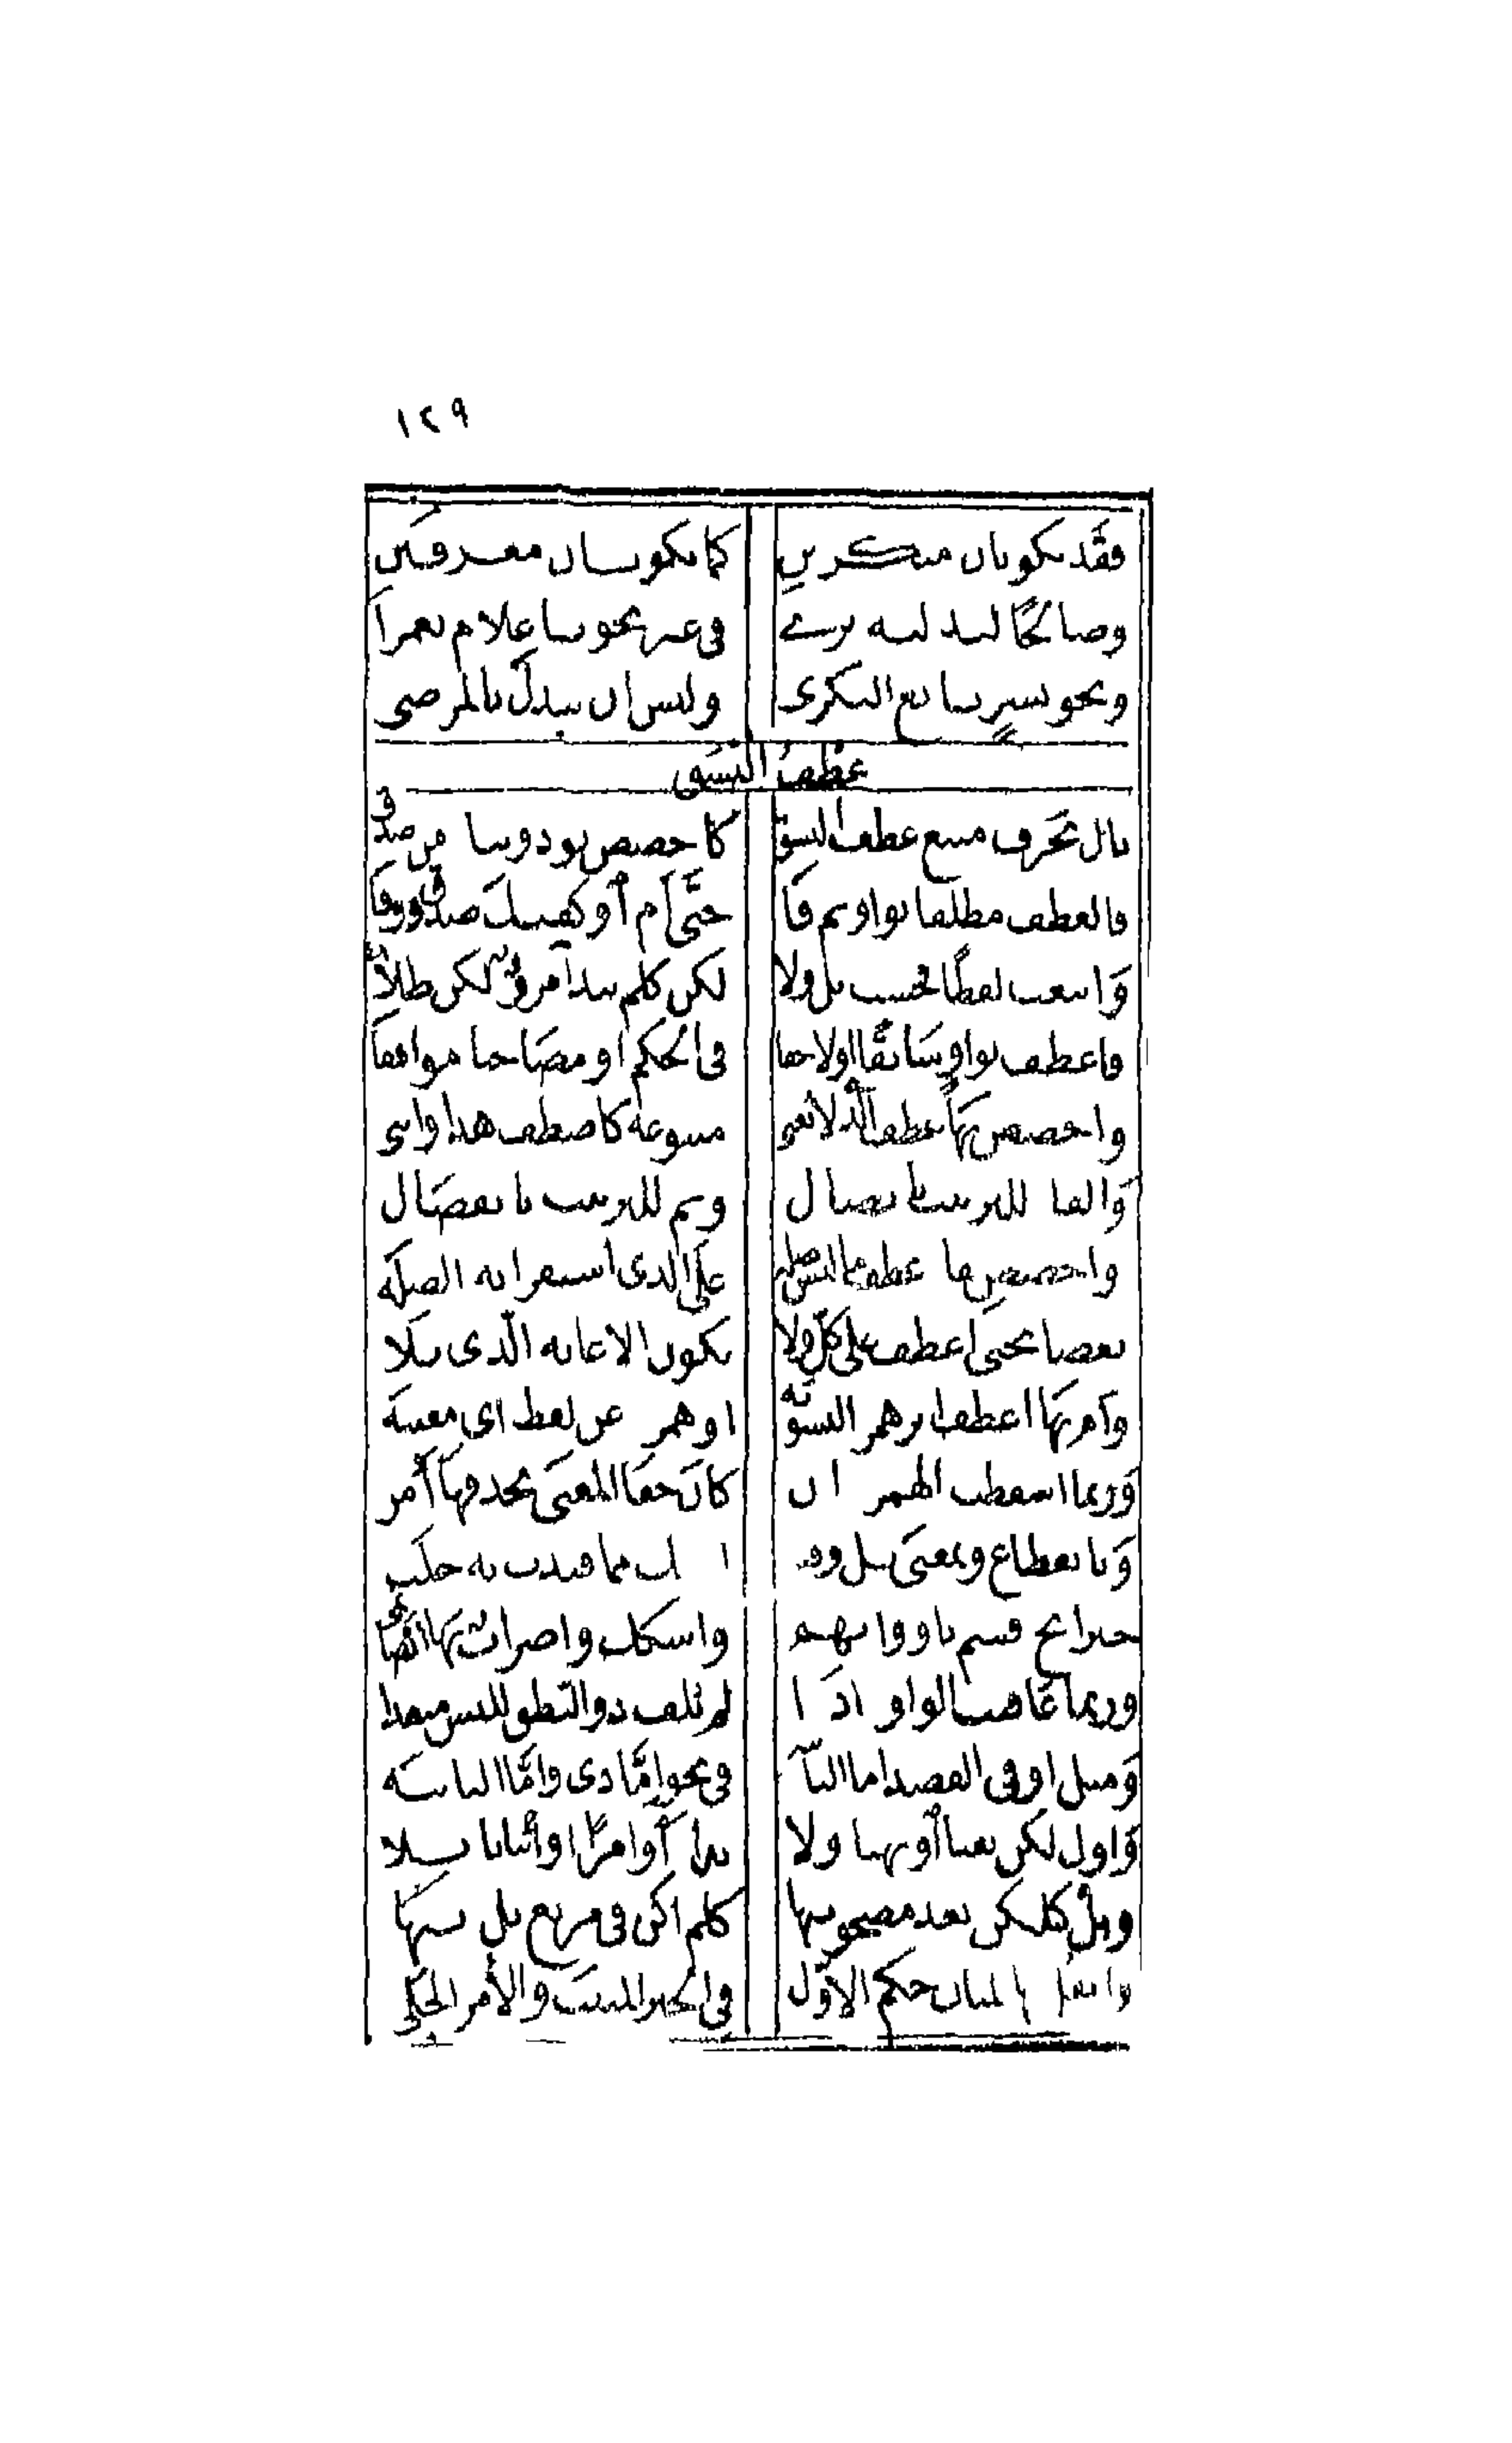 ١٢٩
فقد يكونان منكرين كما يكونان معرفين
وصالحا لبدلية يرى في غير نحو يا غلام يعمرا
ونحو بشر تابع البكري وليس أن يبدل بالمرضي
عطف النسق
تال بحرف متبع عطف النسق كاخصص بود وثنا من صدق
فالعطف مطلقا بواو ثم فا حتى أم أو كفيك صدق ووفا
وأتبعت لفظا فحسب بل ولا لكن كلم يبد امرؤ لكن طلا
فاعطف بواو سابقا أو لاحقا في الحكم أو مصاحبا موافقا
واخصص بها عطف الذي لا يغني متبوعه كاصطف هذا وابني
والفا للترتيب باتصال وثم للترتيب بانفصال
واخصص بفا عطف ما ليس صله على الذي استقر أنه الصله
بعضا بحتى اعطف على كل ولا يكون إلا غاية الذي تلا
وأم بها اعطف إثر همز التسويه أو همزة عن لفظ أي مغنيه
وربما أسقطت الهمزة إن كان خفا المعنى بحذفها أمن
وبانقطاع وبمعنى بل وفت إن تك مما قيدت به خلت
خير أبح قسم بأو وأبهم واشكك وإضراب بها أيضا نمي
وربما عاقبت الواو إذا لم يلف ذو النطق للبس منفذا
ومثل أو في القصد إما الثانيه في نحو إما ذي وإما النائيه
وأول لكن نفيا أو نهيا ولا نداء أو أمرا أو إثباتا تلا
وبل كلكن بعد مصحوبيها كلم أكن في مربع بل تيها
وانقل بها للثان حكم الأول في الخبر المثبت والأمر الجلي